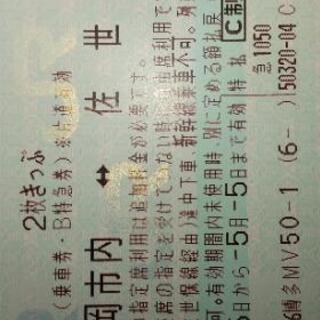 2枚きっぷ
(乗車券・B特急券)
岡市内 ↔ 佐世
指定席利用は追加料金が必要です。
席の指定を受けてない時は自由席利用で
世保線経由)途中下車、新幹線乗車不可。列
可。有効期間内未使用時、別に定める額払戻
日から-5月-5日まで有効 特 C制
急1050
博多MV50-1 (6-) 50320-04 C